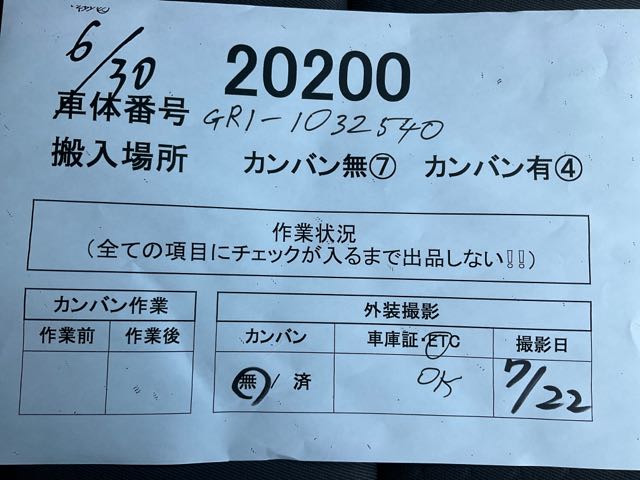 6/30
20200
車体番号 GR1-1032540
搬入場所 カンバン無⑦ カンバン有④
作業状況
(全ての項目にチェックが入るまで出品しない!!)
カンバン作業
作業前 作業後
外装撮影
カンバン 車庫証・ETC 撮影日
無/済 OK 7/22